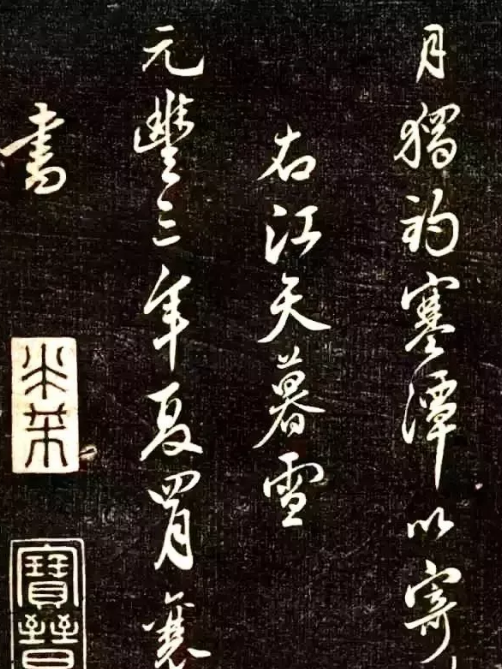 月獨釣寒潭以寄
右江天暮雪
元豐三年夏四月襄
書
米芾
寶晉